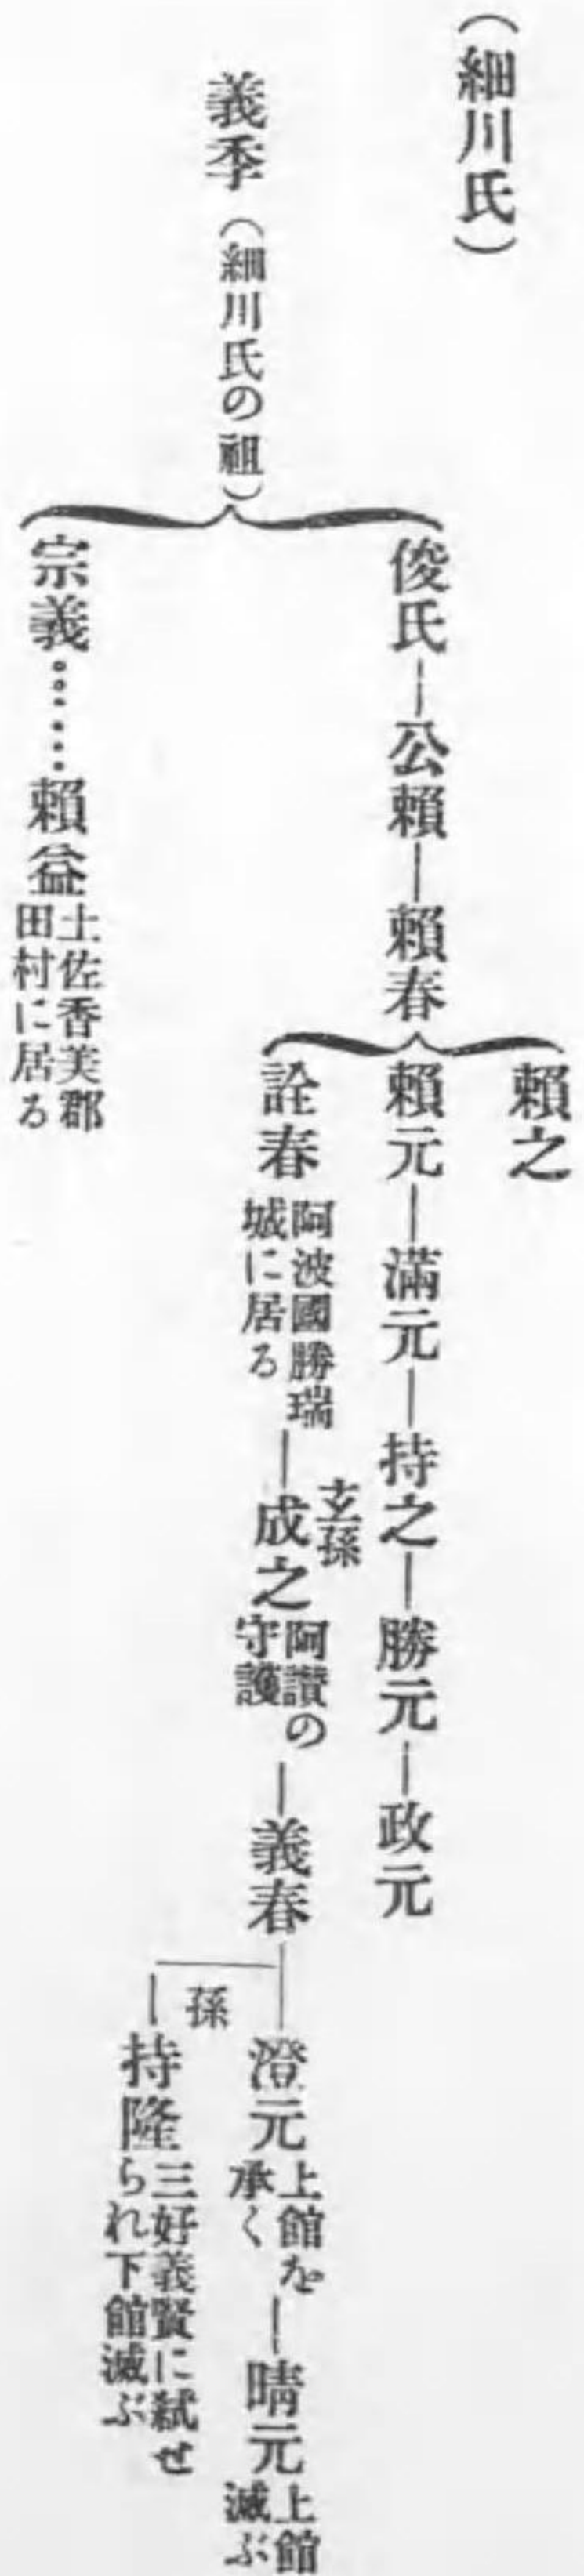 （細川氏）
義季（細川氏の祖）
俊氏―公賴―賴春
賴之
賴元―滿元―持之―勝元―政元
詮春
阿波國勝瑞
城に居る
玄孫
―成之
阿讃の
守護
―義春
―澄元
上館を
承く
―晴元
上館
滅ぶ
孫
―持隆
三好義賢に弑せ
られ下館滅ぶ
宗義……賴益
土佐香美郡
田村に居る